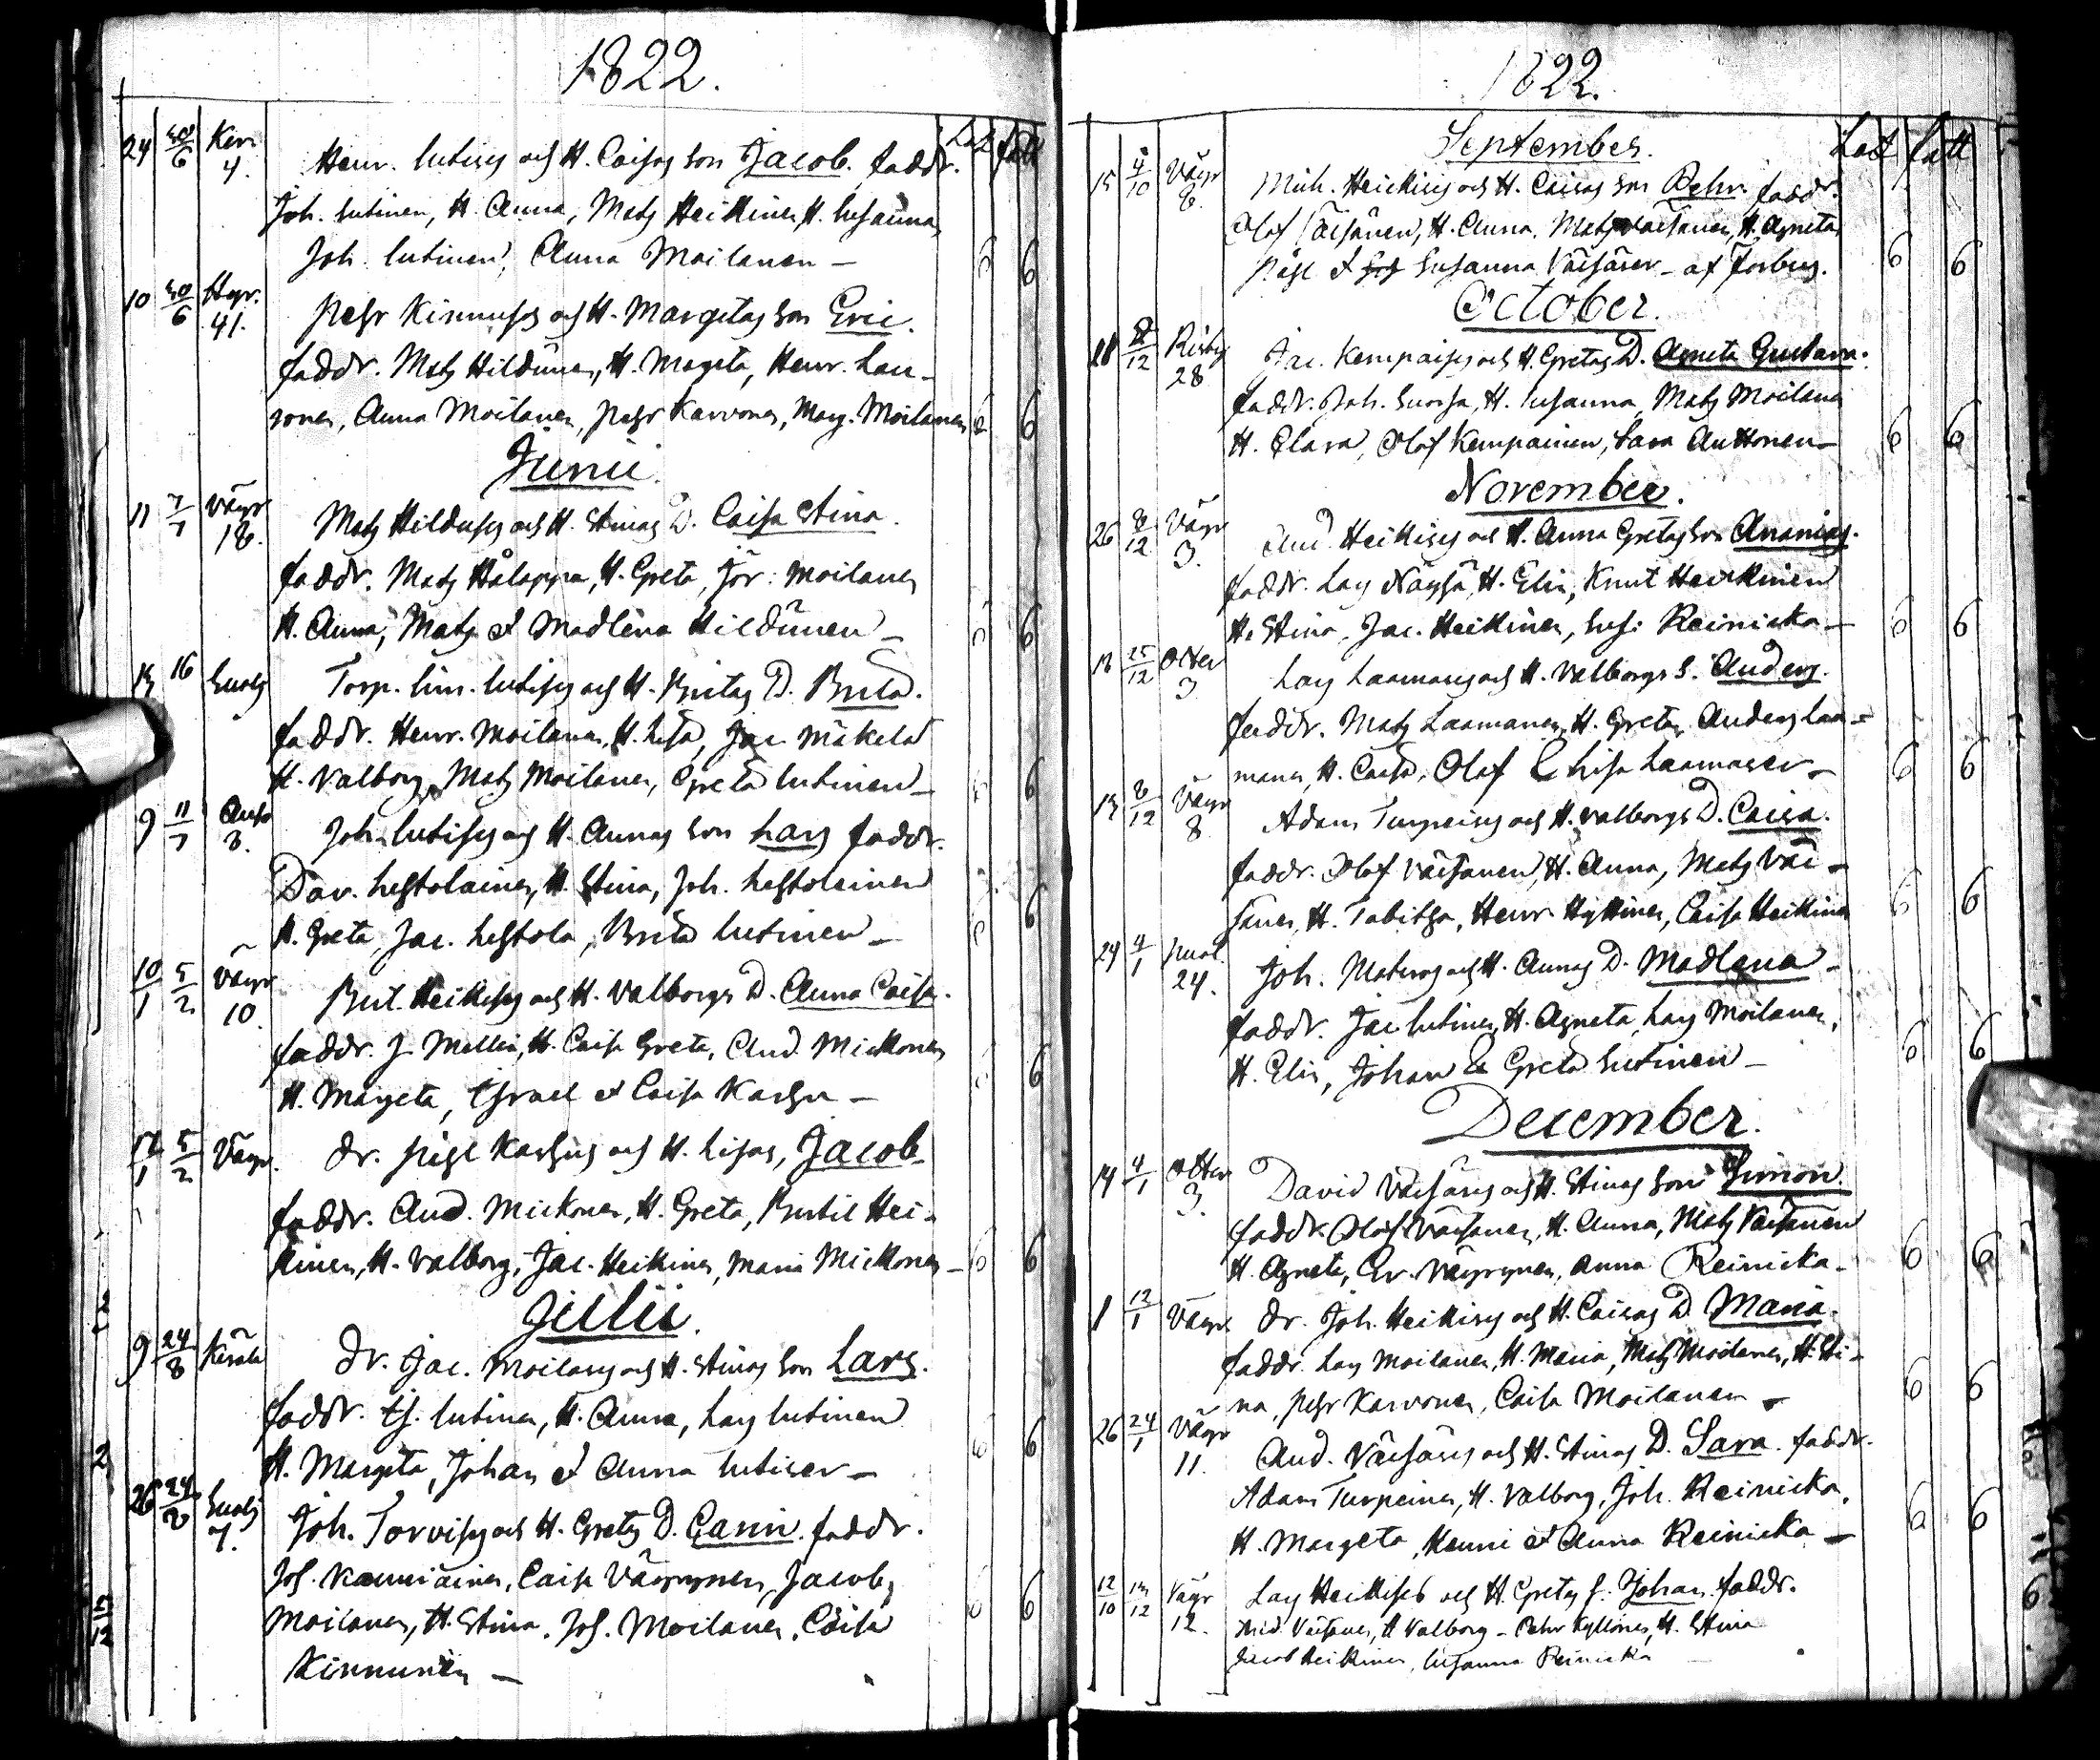 1822.
Lat fatt
24 30/6 Ker. 4. Henr. Lutises och H. Caisas Son Jacob. faddr.
Joh. Lutinen, H. Anna, Matz Heikkinen, H. Susanna,
Joh. Lutinen, Anna Moilanen – 6
10 30/6 Hyr. 41. Pehr Kinnuses och H. Margetas Son Eric.
faddr. Matz Hildunen, H. Mageta, Henr.
Anna Moilanen, Pehr Karvonen, Marg. Moilanen 6
Junii
11 7/7 Väyr 18. Matz Hilduses och H. Stinas D. Caisa Stina.
faddr. Matz Hålappa, H. Greta, Jör: Moilanen
H. Anna, Matz et Madlena Hildunen – 6
16 Torp. Sim. Lutises och H. Britas D. Brita.
faddr. Henr. Moilanen, H. Lisa, Jac. Mäkelä
H. Valborg, Matz Moilanen, Greta Lutinen – 6
9 11/7 8. Joh. Lutises och H. Annas Son Lars faddr.
Dav. Leftolainen, H. Stina, Joh. Leftolainen
H. Greta, Jac. Leftola, Brita Lutinen – 6
10/1 5/2 Väyr 10. Heikkises och H. Valborgs D. Anna Caisa.
faddr. J. Mellin, H. Caisa Greta, And. Mickonen
H. Margeta, Israel et Caisa Karhu – 6
5/2 Väyr. Dr. Karhus och H. Lisas, Jacob
faddr. And. Mickonen, H. Greta, Bertil Hei-
kinen, H. Valborg, Jac. Heikkinen, Maria Mickonen – 6 6
Julii.
9 24/8 Dr. Jac. Moilases och H. Stinas Son Lars.
faddr. Lutinen, H. Anna, Lars Lutinen
H. Margeta, Johan et Anna Lutinen – 6
26 7. Joh. Torvises och H. Gretas D. Carin. faddr.
Joh. Caisa Väyrynen, Jacob
Moilanen, H. Stina, Joh. Moilanen, Caisa 6
Kinnunen –
1822.
September. Lat fatt
15 4/10 Väyr 8. Mich. Heickises och H. Caisas Son Pehr. faddr.
Olof Väisänen, H. Anna, Matz Väisänen, H. Agneta
et Susanna Väisänen – af 6 6
October.
28 12 28 Jac. Kempaises och H. Gretas D. Agneta Gustava.
faddr. Joh. H. Susanna, Matz Moilanen
H. Clara, Olof Kempainen, Sara Anttonen – 6 6
November.
26 12 Väyr 3. And. Heikkises och H. Anna Gretas Son Ananias.
faddr. Lars H. Elin, Knut Heikkinen
H. Stina, Jac. Heikkinen, Reinicka – 6 6
25/12 3 Lars Laamases och H. Valborgs S. Anders.
faddr. Matz Laamanen, H. Greta, Anders Laa-
manen, H. Caisa, Olof & Lisa Laamanen – 6 6
8/12 Väyr 8 Adam Turpeises och H. Valborgs D. Caisa.
faddr. Olof Väisänen, H. Anna, Matz Väi-
sänen, H. Tabitha, Henr. Caisa Heikkinen 6 6
24 4/1 24. Joh. och H. Annas D. Madlena –
faddr. Jac Lutinen, H. Agneta, Lars Moilanen,
H. Elin, Johan & Greta Lutinen – 6 6
December.
14 4/1 3. David Väisäses och H. Stinas Son Simon.
faddr. Olof Väisänen, H. Anna, Matz Väisänen
H. Agneta, Er. Väyrynen, Anna Reinicka – 6 6
1 12/1 Väyr Dr. Joh. Heikkises och H. Caisas D. Maria.
faddr. Lars Moilanen, H. Maria, Matz Moilanen, H. Sti-
na, Pehr Karvonen, Caisa Moilanen – 6 6
26 24/1 Väyr 11. And. Väisäses och H. Stinas D. Sara. faddr.
Adam Turpeinen, H. Valborg, Joh. Reinicka,
H. Margeta, Henric et Anna Reinicka – 6 6
12/10 12 Väyr 12. Lars Heikkises och H. Gretas S. Johan. faddr.
Väisänen, H Valborg – Pehr Kyllönen, H. Stina
Jacob Heikkinen, Susanna Reinicka